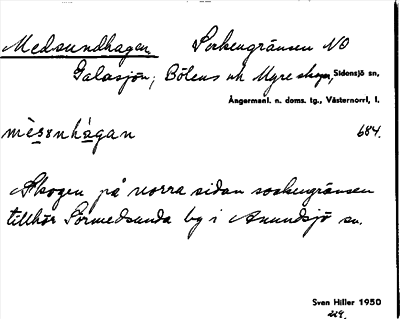 Medsundhagan, Sockengränsen NO
Galasjön; Bölens och Myre skogar, Sidensjö sn,
Ångermanl. n. doms. tg., Västernorrl. l.
mèsɘnhágan 684.
Skogen på norra sidan sockengränsen
tillhör Sörmedsunda by i Anundsjö sn.
Sven Hiller 1950